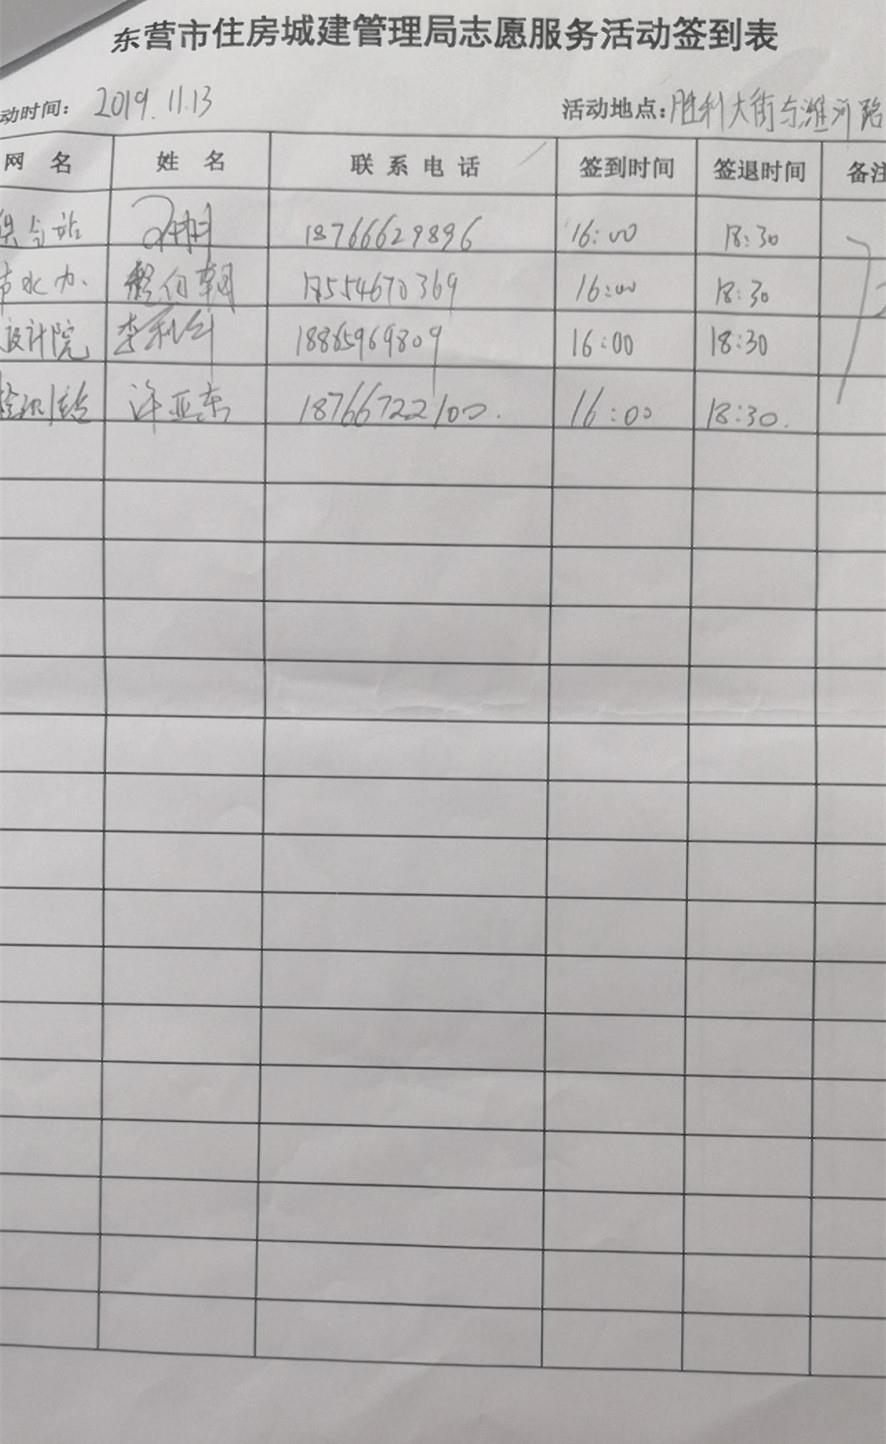 东营市住房城建管理局志愿服务活动签到表
动时间: 2019.11.13 活动地点:胜利大街与潍河路
网 名 姓 名 联系电话 签到时间 签退时间 备注
18766629896 16:00 18:30
节水办 18554670369 16:00 18:30
设计院 李利红 18865969809 16:00 18:30
许亚东 18766722100. 16:00 18:30.